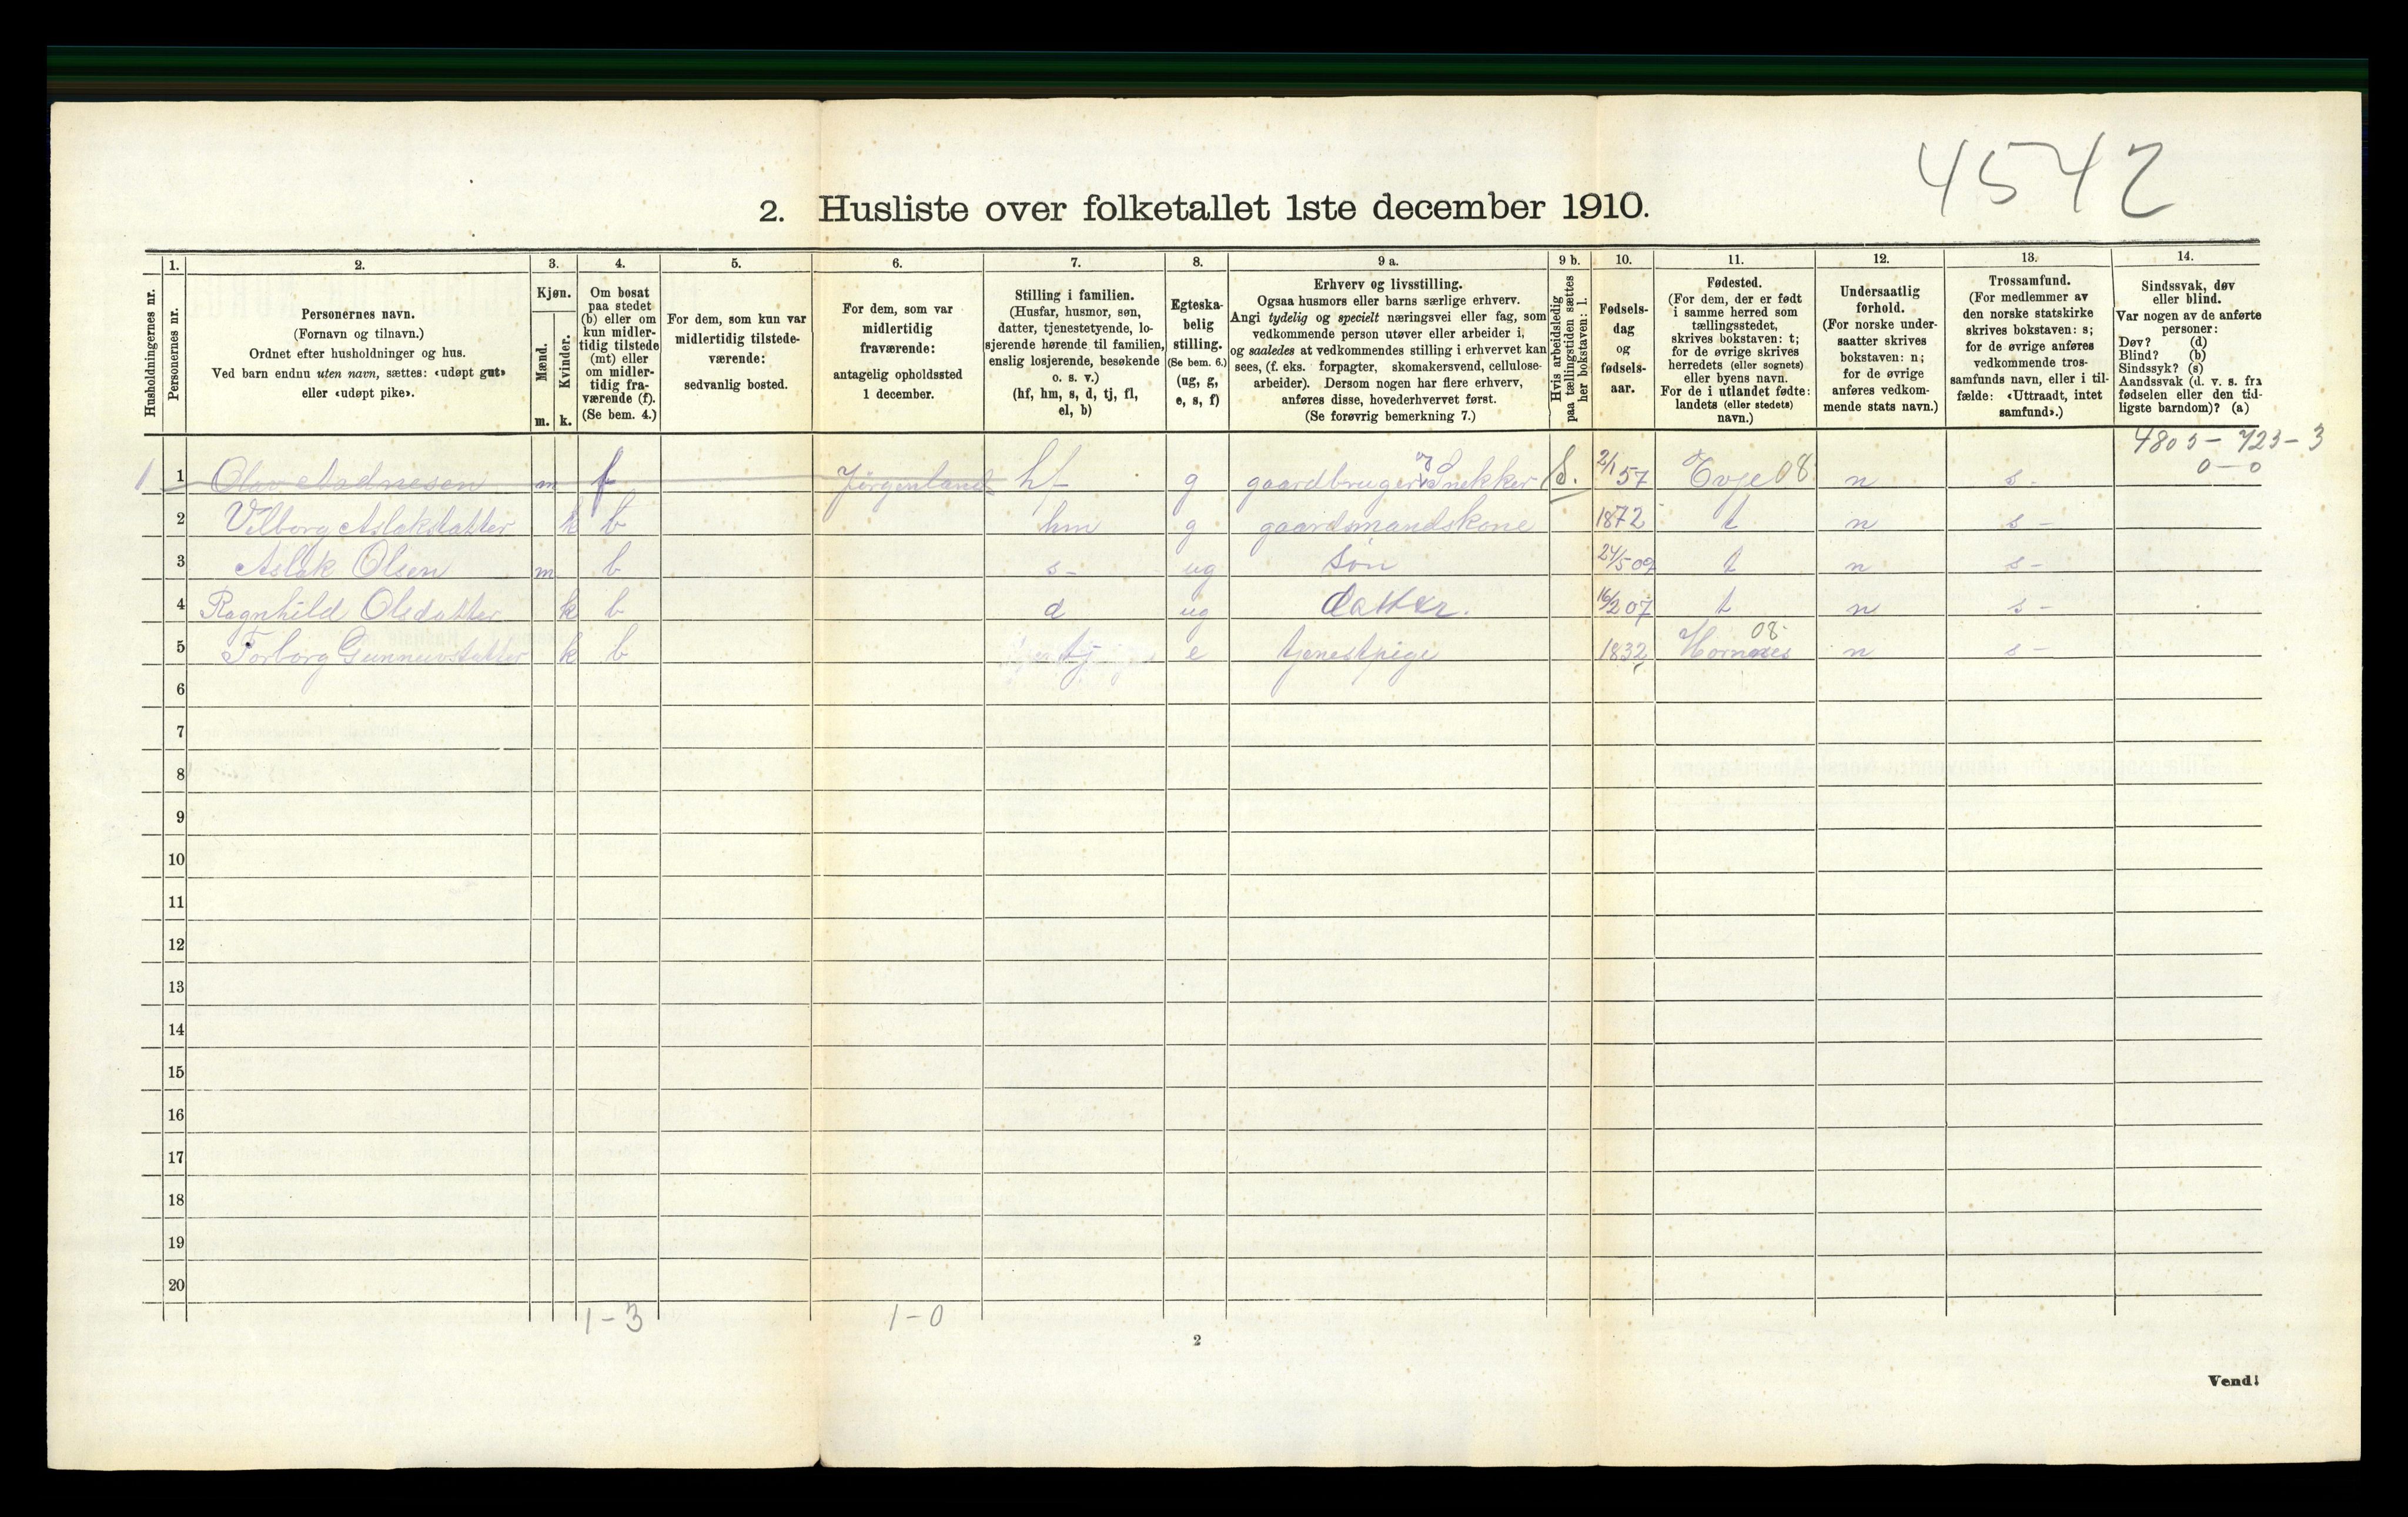 4542
2. Husliste over folketallet 1ste december 1910.
Husholdningernes nr.
1.
Personernes nr.
2.
Personernes navn.
(Fornavn og tilnavn.)
Ordnet efter husholdninger og hus.
Ved barn endnu uten navn, sættes: «udøpt gut»
eller «udøpt pike».
3.
Kjøn.
Mænd.
Kvinder.
m. k.
4.
Om bosat
paa stedet
(b) eller om
kun midler-
tidig tilstede
(mt) eller
om midler-
tidig fra-
værende (f).
(Se bem. 4.)
5.
For dem, som kun var
midlertidig tilstede-
værende:
sedvanlig bosted.
6.
For dem, som var
midlertidig
fraværende:
antagelig opholdssted
1 december.
7.
Stilling i familien.
(Husfar, husmor, søn,
datter, tjenestetyende, lo-
sjerende hørende til familien,
enslig losjerende, besøkende
o. s. v.)
(hf, hm, s, d, tj, fl,
el, b)
8.
Egteska-
belig
stilling.
(Se bem. 6.)
(ug, g,
e, s, f)
9 a.
Erhverv og livsstilling.
Ogsaa husmors eller barns særlige erhverv.
Angi tydelig og specielt næringsvei eller fag, som
vedkommende person utøver eller arbeider i,
og saaledes at vedkommendes stilling i erhvervet kan
sees, (f. eks. forpagter, skomakersvend, cellulose-
arbeider). Dersom nogen har flere erhverv,
anføres disse, hovederhvervet først.
(Se forøvrig bemerkning 7.)
9 b.
Hvis arbeidsledig
paa tællingstiden sættes
her bokstaven: l.
10.
Fødsels-
dag
og
fødsels-
aar.
11.
Fødested.
(For dem, der er født
i samme herred som
tællingsstedet,
skrives bokstaven: t;
for de øvrige skrives
herredets (eller sognets)
eller byens navn.
For de i utlandet fødte:
landets (eller stedets)
navn.)
12.
Undersaatlig
forhold.
(For norske under-
saatter skrives
bokstaven: n;
for de øvrige
anføres vedkom-
mende stats navn.)
13.
Trossamfund.
(For medlemmer av
den norske statskirke
skrives bokstaven: s;
for de øvrige anføres
vedkommende tros-
samfunds navn, eller i til-
fælde: «Uttraadt, intet
samfund».)
14.
Sindssvak, døv
eller blind.
Var nogen av de anførte
personer:
Døv? (d)
Blind? (b)
Sindssyk? (s)
Aandssvak (d. v. s. fra
fødselen eller den tid-
ligste barndom)? (a)
4805 - 723 - 3
0 - 0
1 1 Olav Aadnesen m f Jørgenland hf g gaardbruger og Snekker S. 2/1 57 Evje 08 n s-
2 Vilborg Aslaksdatter k b hm g gaardsmandskone 1872 t n s-
3 Aslak Olsen m b s- ug Søn 24/5 09 t n s-
4 Ragnhild Olsdatter k b d ug datter. 16/2 07 t n s-
5 Torborg Gunnuvsdatter k b tj e tjenestpige 1832 Hornnes 08 n s-
6
7
8
9
10
11
12
13
14
15
16
17
18
19
20
1-3 1-0
2
Vend!